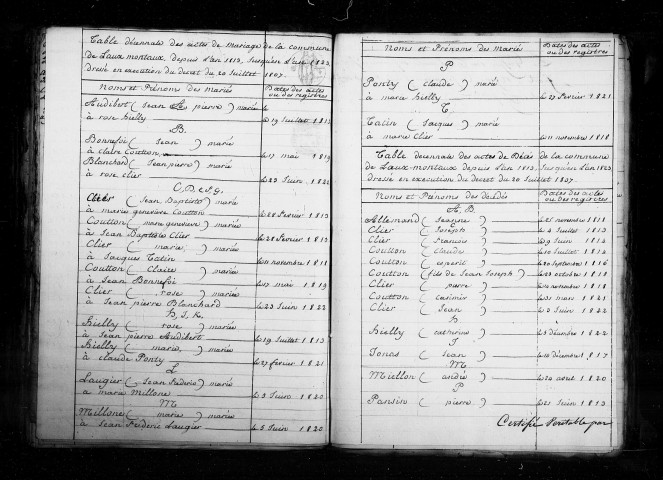 Table décennale des actes de mariage de la commune
de Laux montaux, depuis l'an 1813, jusqu'en l'an 1823
dressé en execution du decret du 20 Juillet 1807.
Noms et Prénoms des mariés
Dates des actes ou des registres
Audibert (Jean pierre) marié
à rose hielly le 19 Juillet 1813
B.
Bonnefoi (Jean) marié
à Claire Coutton le 17 mai 1819
Blanchard (Jean pierre) marié
à rose clier le 23 Juin 1822
Clier (Jean Baptiste) marié
à marie geneviève Coutton le 28 fevrier 1813
Coutton (marie geneviève) mariée
à Jean Baptiste Clier le 28 fevrier 1813
Clier (marie) mariée
à Jacques Tatin le 11 novembre 1818
Coutton (Claire) mariée
à Jean Bonnefoi le 17 mai 1819
Clier (rose) mariée
à Jean pierre Blanchard le 23 Juin 1822
hielly (rose) mariée
à Jean pierre Audibert le 19 Juillet 1813
hielly (marie) mariée
à claude Ponty le 27 fevrier 1821
L
Laugier (Jean frederic) marié
à marie Millone le 5 Juin 1820
M
Millone (marie) mariée
à Jean frederic Laugier le 5 Juin 1820
Noms et Prénoms des Mariés
Dates des actes ou des registres
P
Ponty (claude) marié
à marie hielly le 27 fevrier 1821
T
Tatin (Jacques) marié
à marie Clier le 11 novembre 1818
Table décennale des actes de Décès de la commune
de Laux-montaux depuis l'an 1813, Jusqu'en l'an 1823
dressée en execution du decret du 20 Juillet 1807.
Noms et Prénoms des décédés
Dates des actes ou des registres
A, B.
Allemand (Jeanne) novembre 1818
Clier (Joseph) Juillet 1813
Clier (francois) Juin 1814
Coutton (claude) le 20 Juillet 1814
Coutton (esperit) le 20 Septembre 1816
Coutton (fils de Jean Joseph) octobre 1818
Clier (pierre) novembre 1818
Coutton (casimir) mars 1821
Clier (Jean) Juin 1822
h
hielly (catherine) décembre 1822
J
Jonas (Jean) décembre 1817
M
Miellon (andré) le 20 aout 1820
P
Pansin (pierre) le 21 Juin 1813
Certifié Véritable par